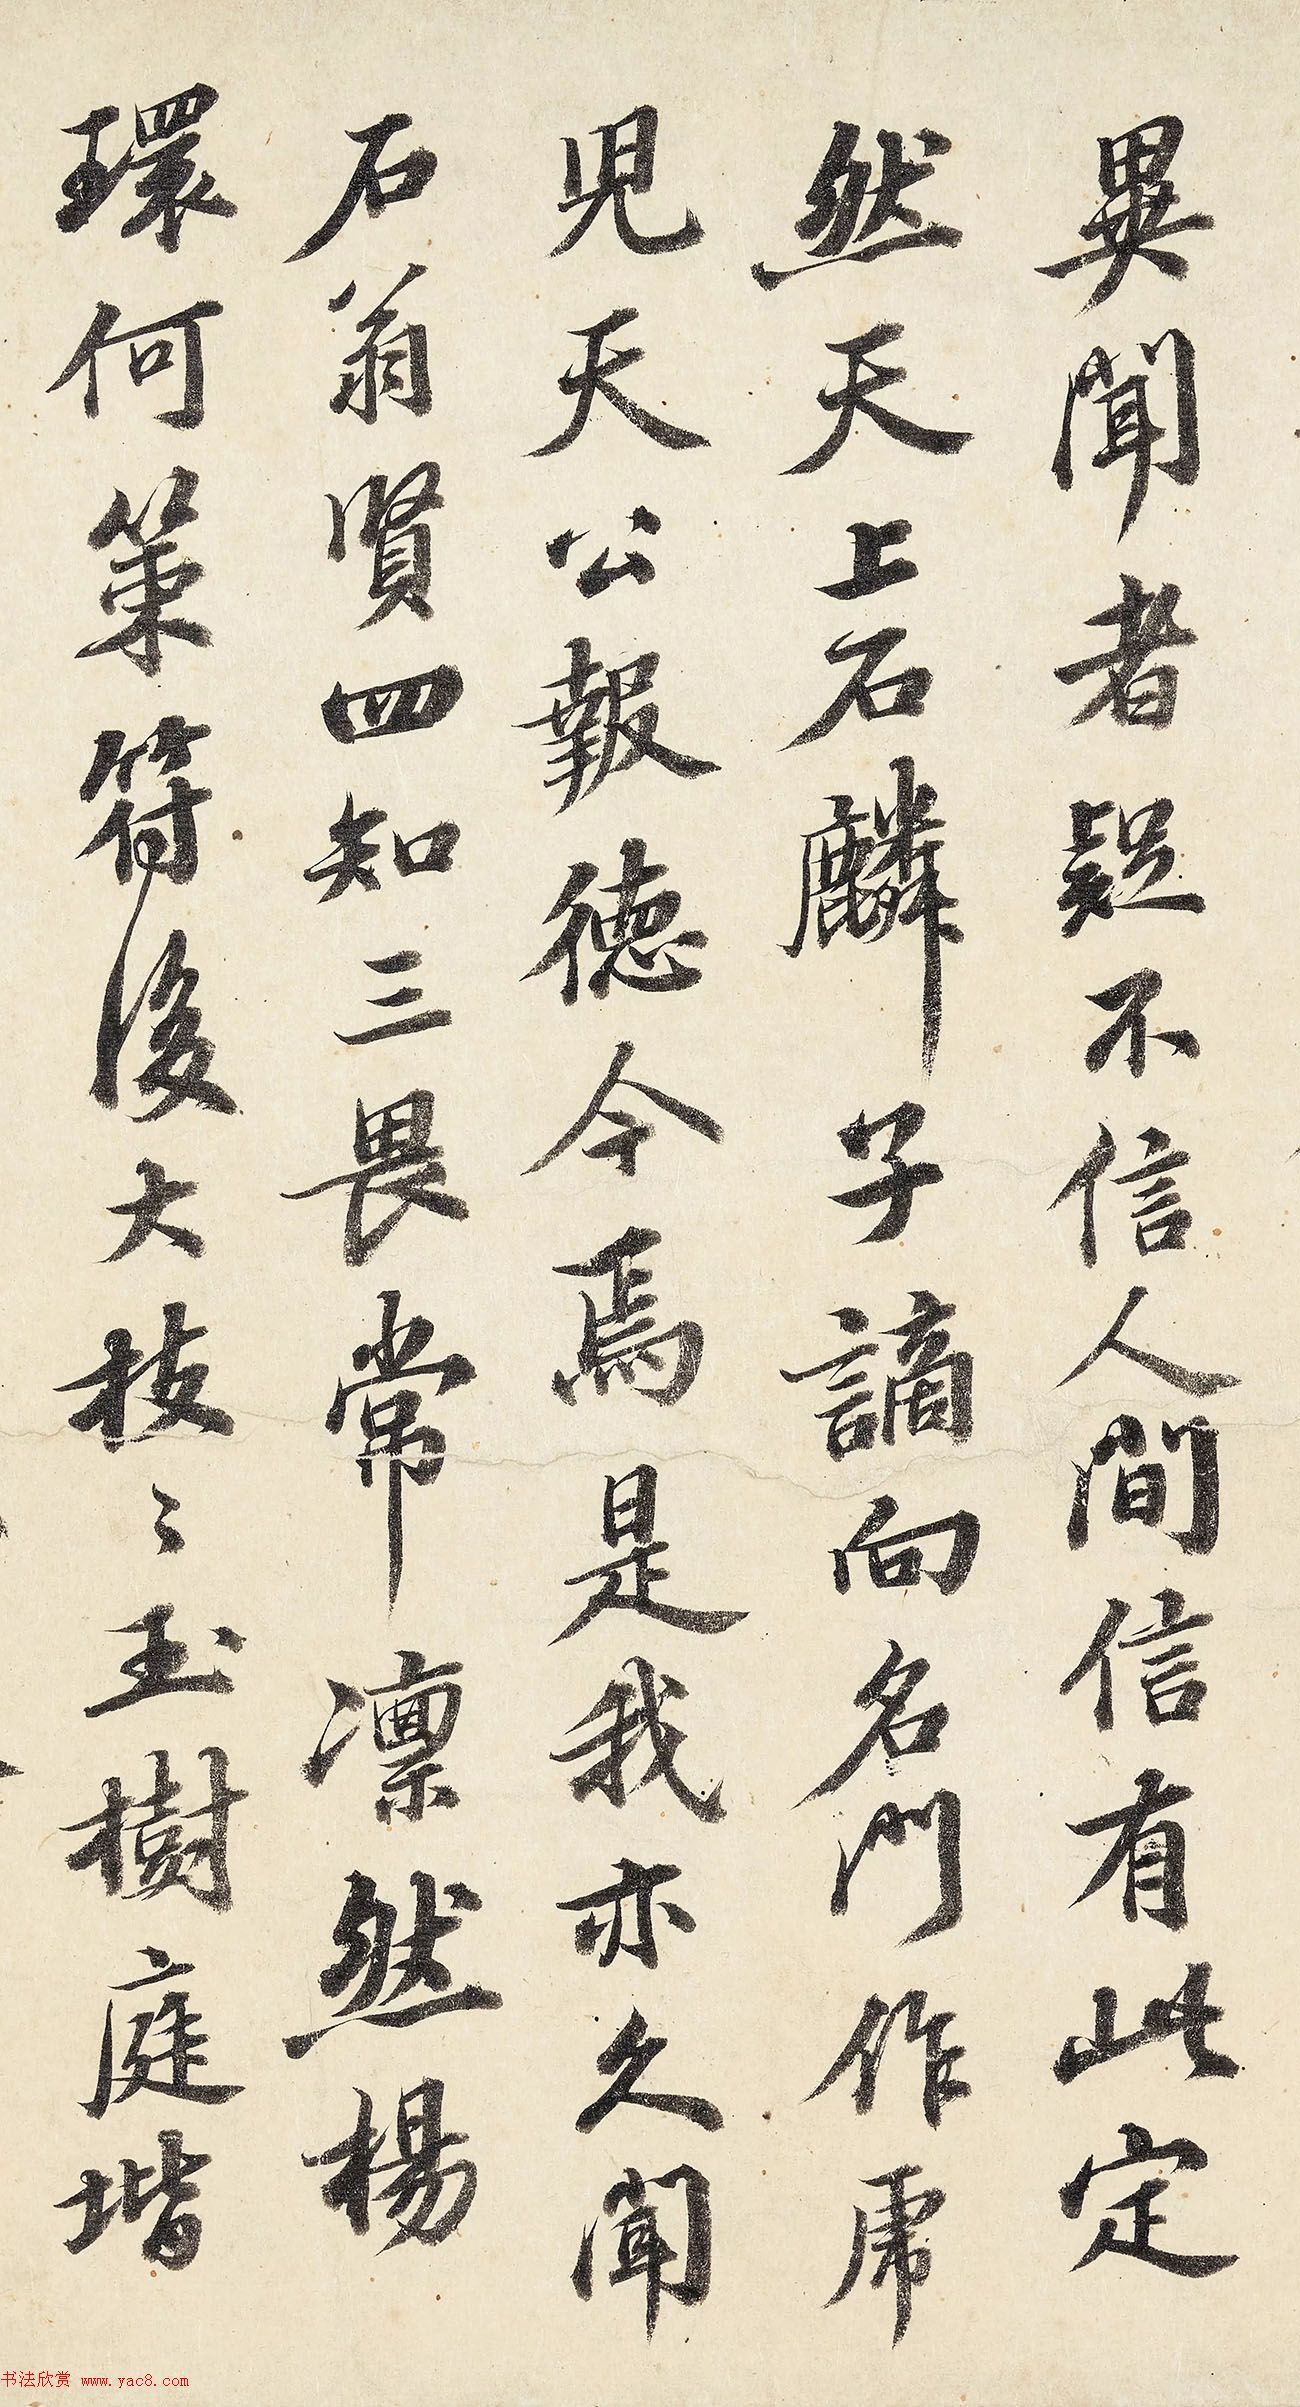 異聞者疑不信人間信有此定
然天上石麟子謫向名門作虎
児天公報德今焉是我亦久聞
石翁賢四知三畏常凛然楊
環何策符後大枝〻玉樹庭堦
书法欣赏 www.yac8.com